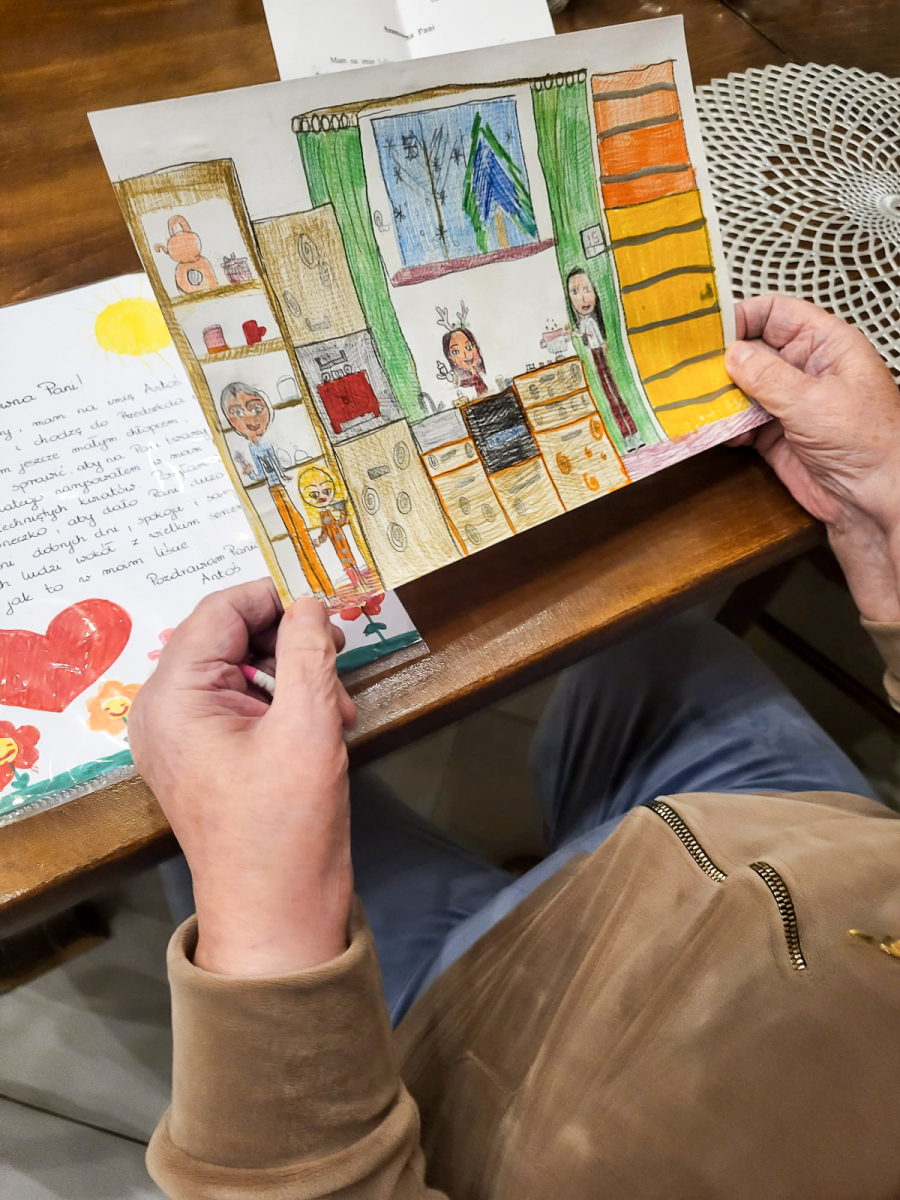 Szanowna Pani
Mam na imię
wna Pani!
ry, mam na imię Antoś
i chodzę do Przedszkola
m jeszcze małym chłopcem,
sprawić, aby na Pani twarzy
latego narysowałem w mam
iechniętych kwiatów. W tam
neczko, aby dało Pani dużo
ni dobrych dni, spokoju i sam
ch ludzi wokół z wielkim serce
jak to w moim liście.
Pozdrawiam Panią
Antoś